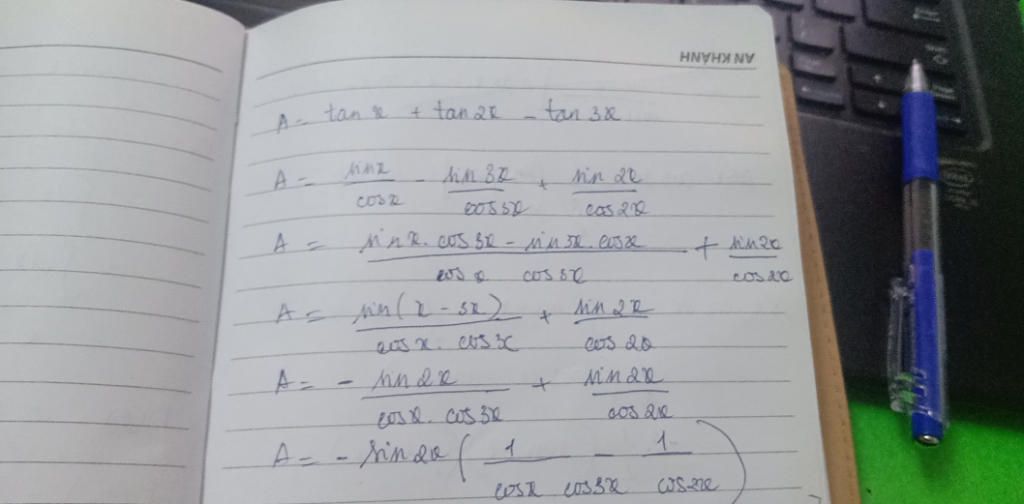 AN KHANH
A = tan x + tan 2x - tan 3x
A = sin x / cos x - sin 3x / cos 3x + sin 2x / cos 2x
A = sin x . cos 3x - sin 3x . cos x / cos x cos 3x + sin 2x / cos 2x
A = sin (x - 3x) / cos x . cos 3x + sin 2x / cos 2x
A = - sin 2x / cos x . cos 3x + sin 2x / cos 2x
A = - sin 2x ( 1 / cos x cos 3x - 1 / cos 2x )